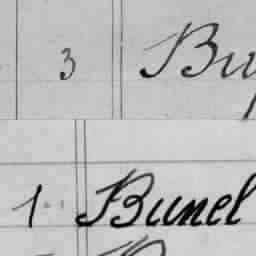 3 Bu
1 Bunel